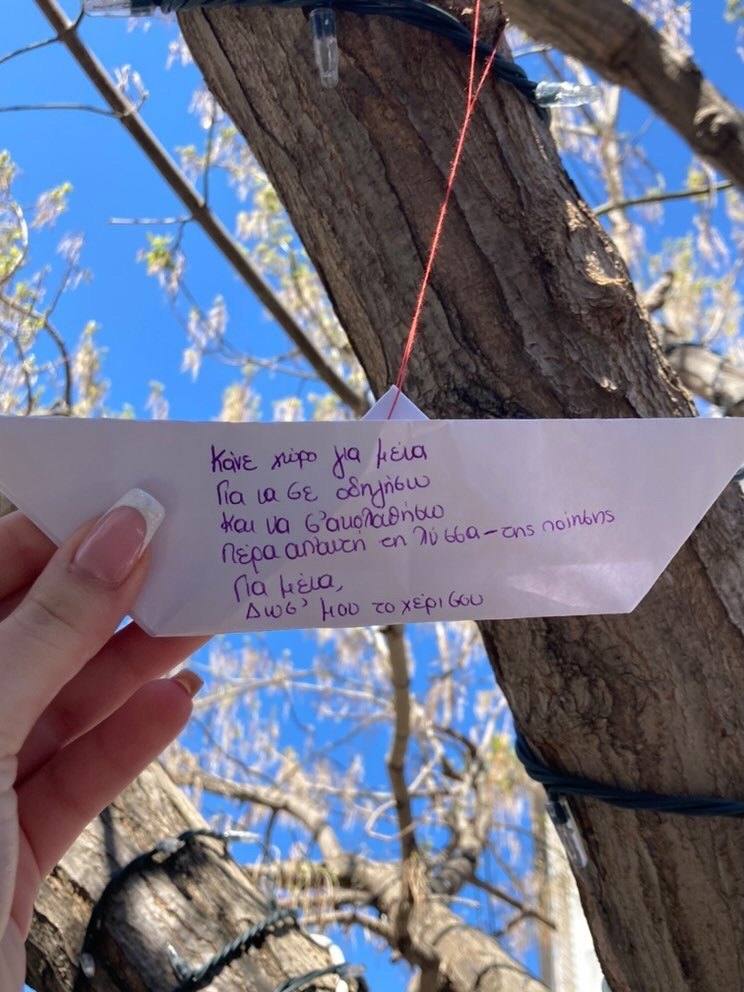 Κάνε χώρο για μένα
Για να σε οδηγήσω
Και να σ'ακολουθήσω
Πέρα απ'αυτή τη λύσσα-της ποίησης
Για μένα,
Δωσ' μου το χέρι σου